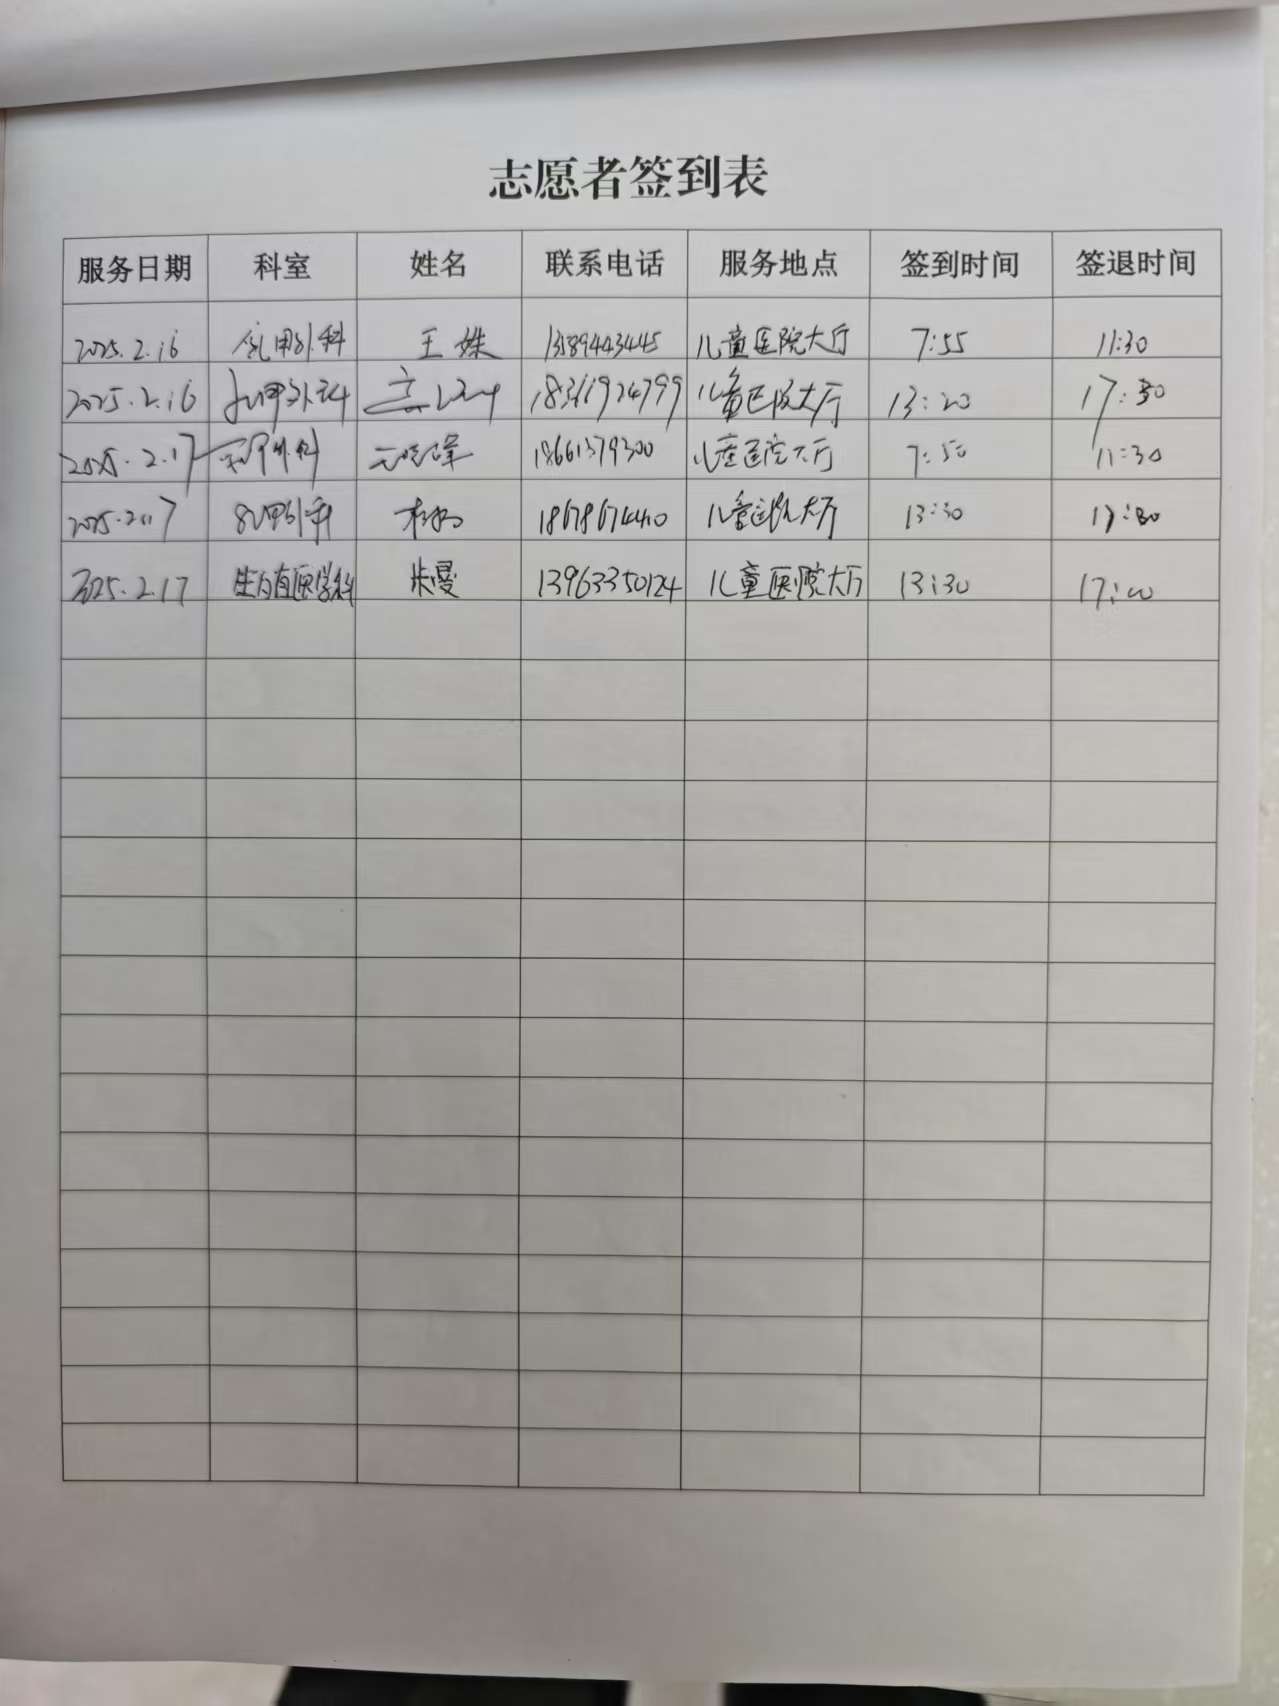 志愿者签到表
服务日期 科室 姓名 联系电话 服务地点 签到时间 签退时间
2025.2.16 乳甲外科 王姝 13589443445 儿童医院大厅 7:55 11:30
2025.2.16 乳甲外科 18361924799 儿童医院大厅 13:20 17:30
2025.2.17 乳甲外科 18661379300 儿童医院大厅 7:50 11:30
2025.2.17 乳甲外科 18678674440 儿童医院大厅 13:30 17:30
2025.2.17 生殖医学科 13963350124 儿童医院大厅 13:30 17:00